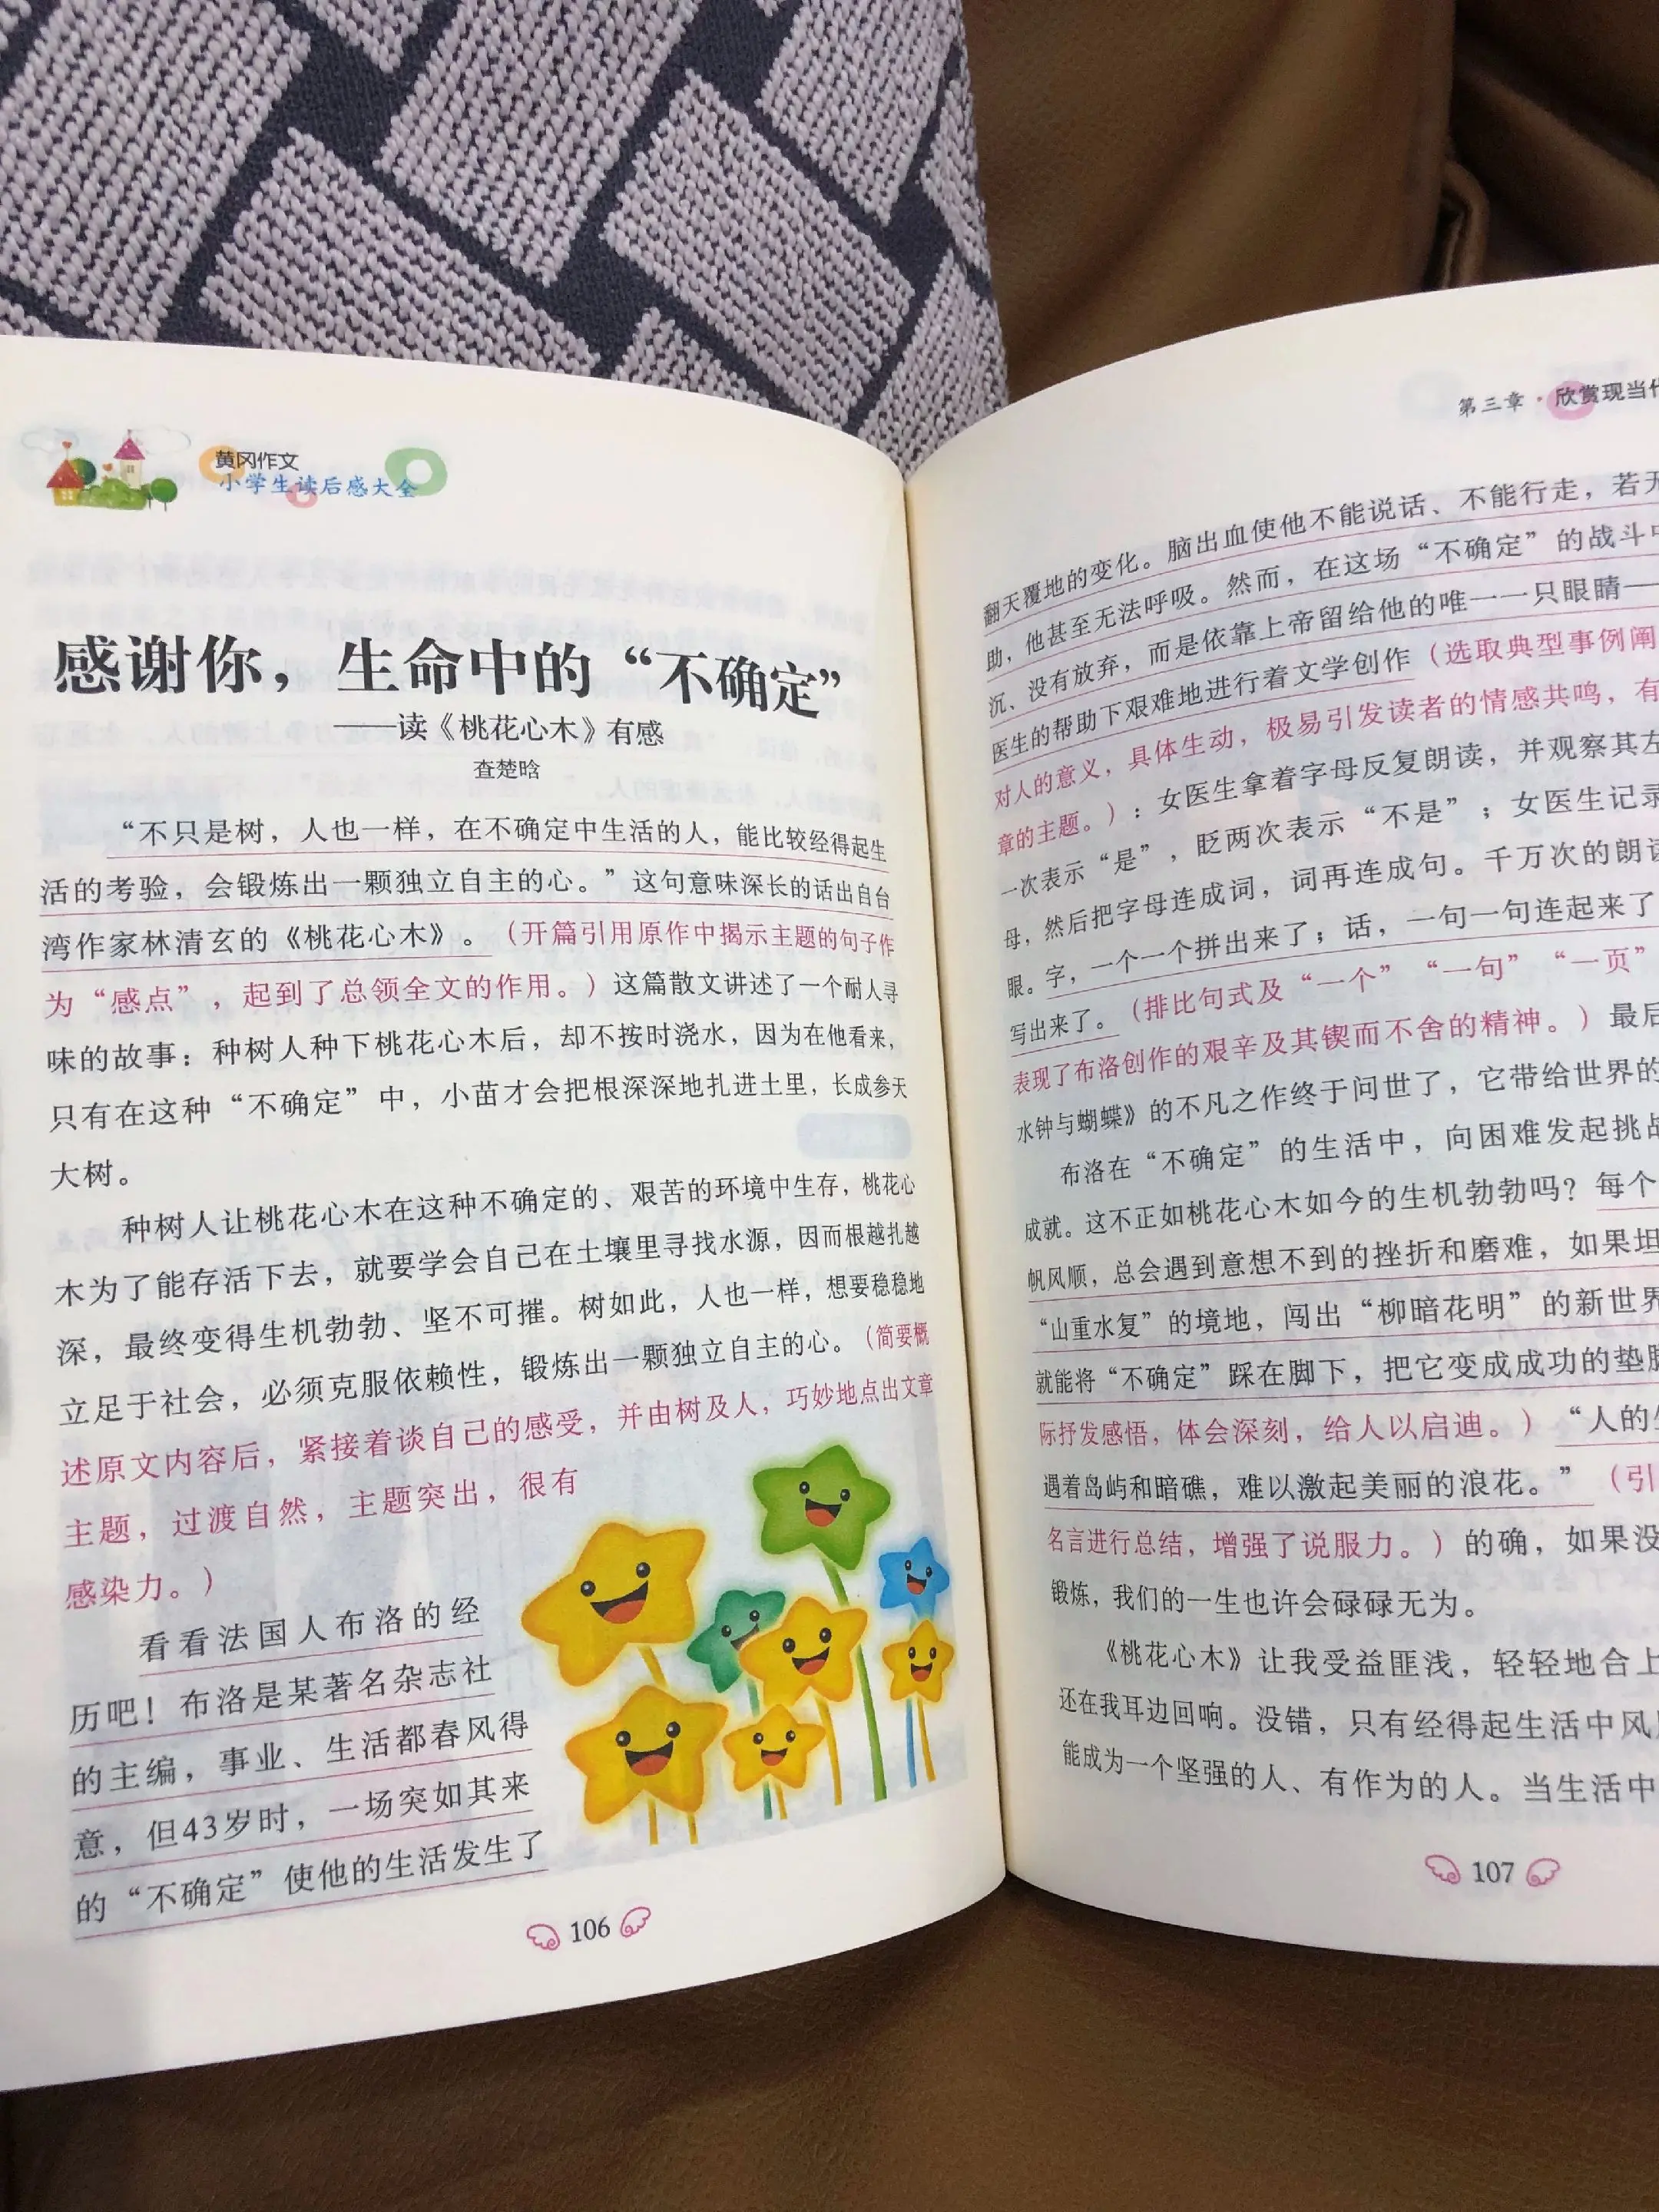 黄冈作文
小学生读后感大全
感谢你，生命中的“不确定”
——读《桃花心木》有感
查楚晗
“不只是树，人也一样，在不确定中生活的人，能比较经得起生
活的考验，会锻炼出一颗独立自主的心。”这句意味深长的话出自台
湾作家林清玄的《桃花心木》。（开篇引用原作中揭示主题的句子作
为“感点”，起到了总领全文的作用。）这篇散文讲述了一个耐人寻
味的故事：种树人种下桃花心木后，却不按时浇水，因为在他看来，
只有在这种“不确定”中，小苗才会把根深深地扎进土里，长成参天
大树。
种树人让桃花心木在这种不确定的、艰苦的环境中生存，桃花心
木为了能存活下去，就要学会自己在土壤里寻找水源，因而根越扎越
深，最终变得生机勃勃、坚不可摧。树如此，人也一样，想要稳稳地
立足于社会，必须克服依赖性，锻炼出一颗独立自主的心。（简要概
述原文内容后，紧接着谈自己的感受，并由树及人，巧妙地点出文章
主题，过渡自然，主题突出，很有
感染力。）
看看法国人布洛的经
历吧！布洛是某著名杂志社
的主编，事业、生活都春风得
意，但43岁时，一场突如其来
的“不确定”使他的生活发生了
106
第三章·欣赏现当代
翻天覆地的变化。脑出血使他不能说话、不能行走，若无
助，他甚至无法呼吸。然而，在这场“不确定”的战斗中
沉、没有放弃，而是依靠上帝留给他的唯一一只眼睛—
医生的帮助下艰难地进行着文学创作（选取典型事例阐
对人的意义，具体生动，极易引发读者的情感共鸣，有
章的主题。）：女医生拿着字母反复朗读，并观察其左
一次表示“是”，眨两次表示“不是”；女医生记录
母，然后把字母连成词，词再连成句。千万次的朗读
眼。字，一个一个拼出来了；话，一句一句连起来了
写出来了。（排比句式及“一个”“一句”“一页”
表现了布洛创作的艰辛及其锲而不舍的精神。）最后
水钟与蝴蝶》的不凡之作终于问世了，它带给世界的
布洛在“不确定”的生活中，向困难发起挑战
成就。这不正如桃花心木如今的生机勃勃吗？每个
帆风顺，总会遇到意想不到的挫折和磨难，如果坦
“山重水复”的境地，闯出“柳暗花明”的新世界
就能将“不确定”踩在脚下，把它变成成功的垫脚
际抒发感悟，体会深刻，给人以启迪。）“人的生
遇着岛屿和暗礁，难以激起美丽的浪花。”（引
名言进行总结，增强了说服力。）的确，如果没
锻炼，我们的一生也许会碌碌无为。
《桃花心木》让我受益匪浅，轻轻地合上
还在我耳边回响。没错，只有经得起生活中风
能成为一个坚强的人、有作为的人。当生活中
107